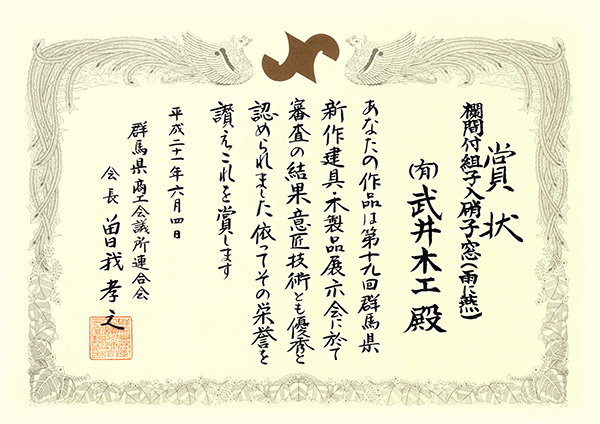 賞状
欄間付組子入硝子窓(雨に燕)
(有)武井木工殿
あなたの作品は第十九回群馬県
新作建具・木製品展示会に於て
審査の結果意匠技術とも優秀と
認められました依ってその栄誉を
讃えこれを賞します
平成二十一年六月四日
群馬県商工会議所連合会
会長 曽我孝之